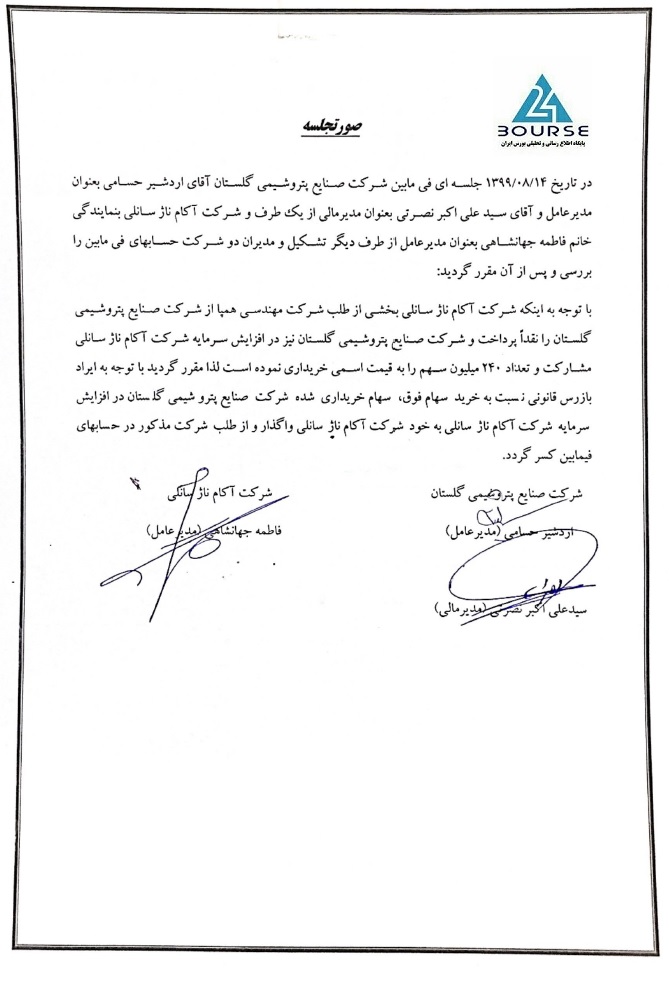 24
BOURSE
پایگاه اطلاع رسانی و تحلیلی بورس ایران
صورتجلسه
در تاریخ ۱۳۹۹/۰۸/۱۴ جلسه ای فی مابین شرکت صنایع پتروشیمی گلستان آقای اردشیر حسامی بعنوان
مدیرعامل و آقای سید علی اکبر نصرتی بعنوان مدیرمالی از یک طرف و شرکت آکام ناژ سانلی بنمایندگی
خانم فاطمه جهانشاهی بعنوان مدیرعامل از طرف دیگر تشکیل و مدیران دو شرکت حسابهای فی مابین را
بررسی و پس از آن مقرر گردید:
با توجه به اینکه شرکت آکام ناژ سانلی بخشی از طلب شرکت مهندسی همپا از شرکت صنایع پتروشیمی
گلستان را نقداً پرداخت و شرکت صنایع پتروشیمی گلستان نیز در افزایش سرمایه شرکت آکام ناژ سانلی
مشارکت و تعداد ۲۴۰ میلیون سهم را به قیمت اسمی خریداری نموده است لذا مقرر گردید با توجه به ایراد
بازرس قانونی نسبت به خرید سهام فوق، سهام خریداری شده شرکت صنایع پتروشیمی گلستان در افزایش
سرمایه شرکت آکام ناژ سانلی به خود شرکت آکام ناژ سانلی واگذار و از طلب شرکت مذکور در حسابهای
فیمابین کسر گردد.
شرکت صنایع پتروشیمی گلستان
اردشیر حسامی (مدیرعامل)
سیدعلی اکبر نصرتی (مدیرمالی)
شرکت آکام ناژ سانلی
فاطمه جهانشاهی (مدیرعامل)